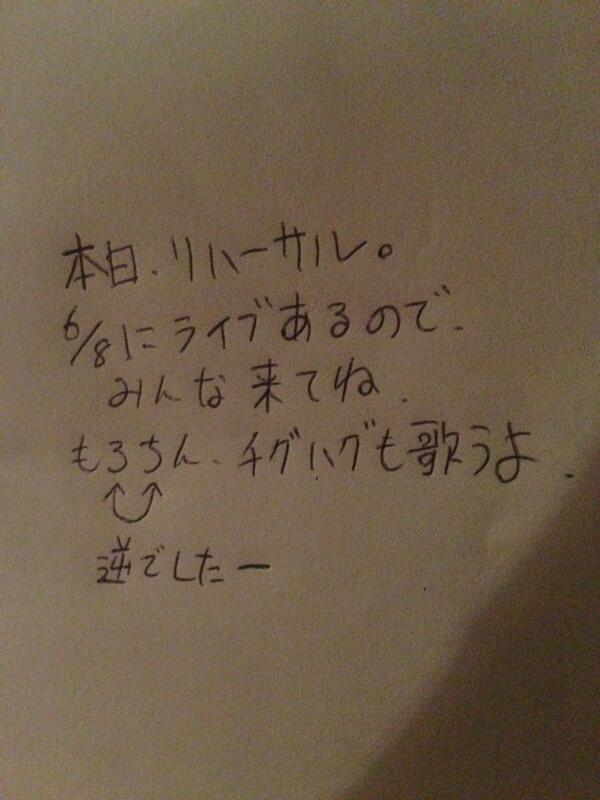 本日、リハーサル。
6/8にライブあるので、
みんな来てね、
もろちん、チグハグも歌うよ、
逆でしたー